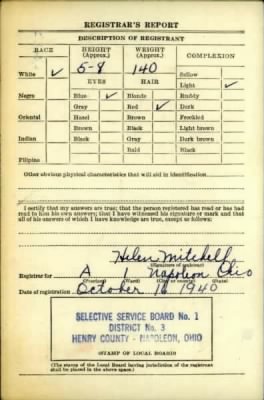 REGISTRAR'S REPORT
DESCRIPTION OF REGISTRANT
RACE HEIGHT (Approx.) WEIGHT (Approx.) COMPLEXION
White ✓ 5-8 140 Sallow
EYES HAIR Light ✓
Negro Blue ✓ Blonde Ruddy
Gray Red ✓ Dark
Oriental Hazel Brown Freckled
Brown Black Light brown
Indian Black Gray Dark brown
Bald Black
Filipino
Other obvious physical characteristics that will aid in identification
I certify that my answers are true; that the person registered has read or has had
read to him his own answers; that I have witnessed his signature or mark and that
all of his answers of which I have knowledge are true, except as follows:
Helen Mitchell
(Signature of registrar)
Registrar for A 1 Napoleon Ohio
(Precinct) (Ward) (City or county) (State)
Date of registration October 16 1940
SELECTIVE SERVICE BOARD No. 1
DISTRICT No. 3
HENRY COUNTY - NAPOLEON, OHIO
(STAMP OF LOCAL BOARD)
(The stamp of the Local Board having jurisdiction of the registrant
shall be placed in the above space.)